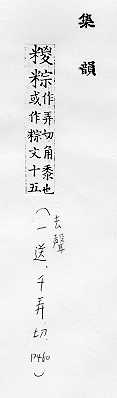 集韻
糉粽作弄切角黍也
或作粽文十五
去聲
(一送，千弄切. P460)